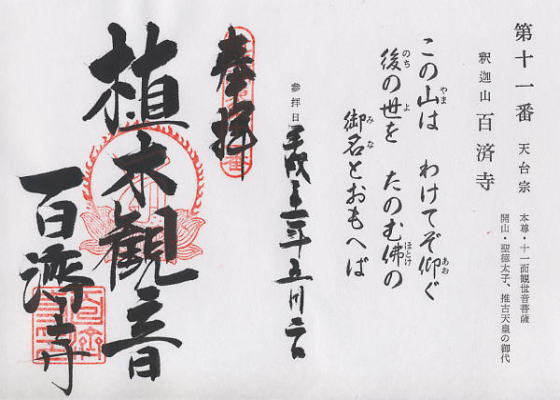 第十一番 天台宗 本尊・十一面観世音菩薩
開山・聖徳太子、推古天皇の御代
釈迦山 百済寺
この山は わけてぞ仰ぐ
後の世を たのむ佛の
御名とおもへば
参拝日
奉拝
植木観音
百濟寺